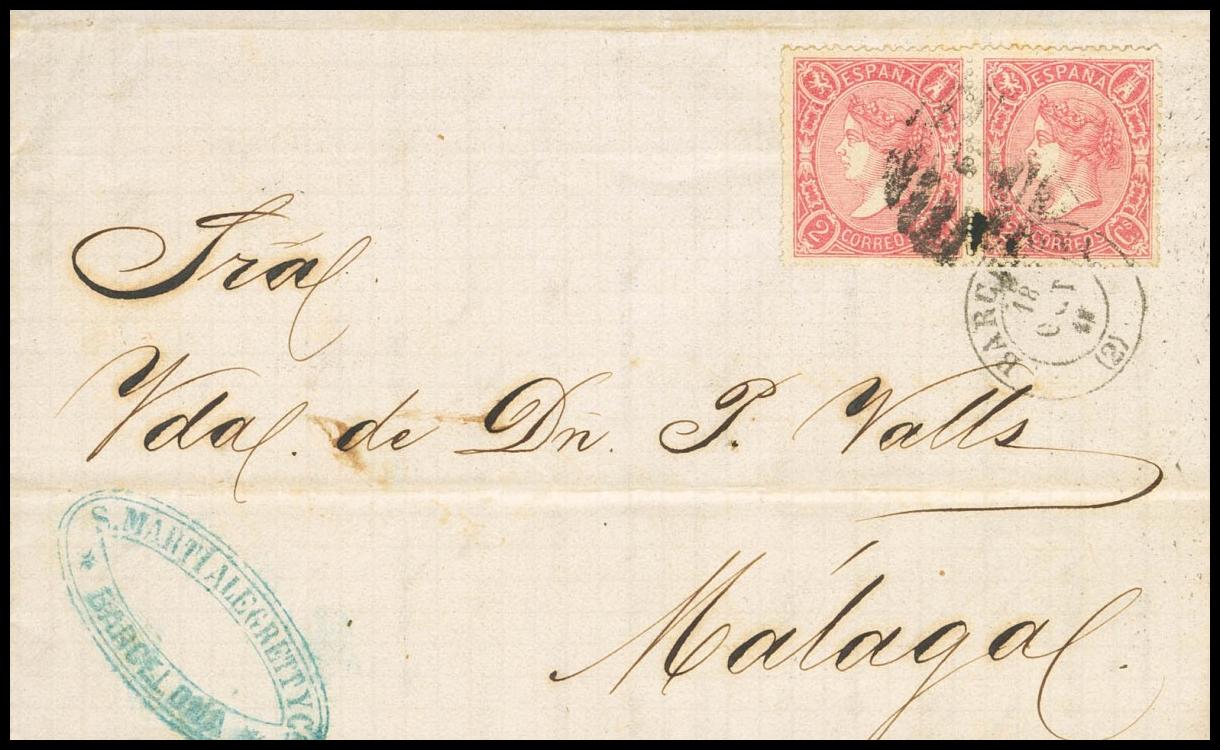 ESPAÑA ESPAÑA
2 CORREO
CORREOS Cs
BARC
18
OCT
(2)
Sra
Vda de Dn. P. Valls
Málaga.
S. MARTI ALEGRET Y C
BARCELONA